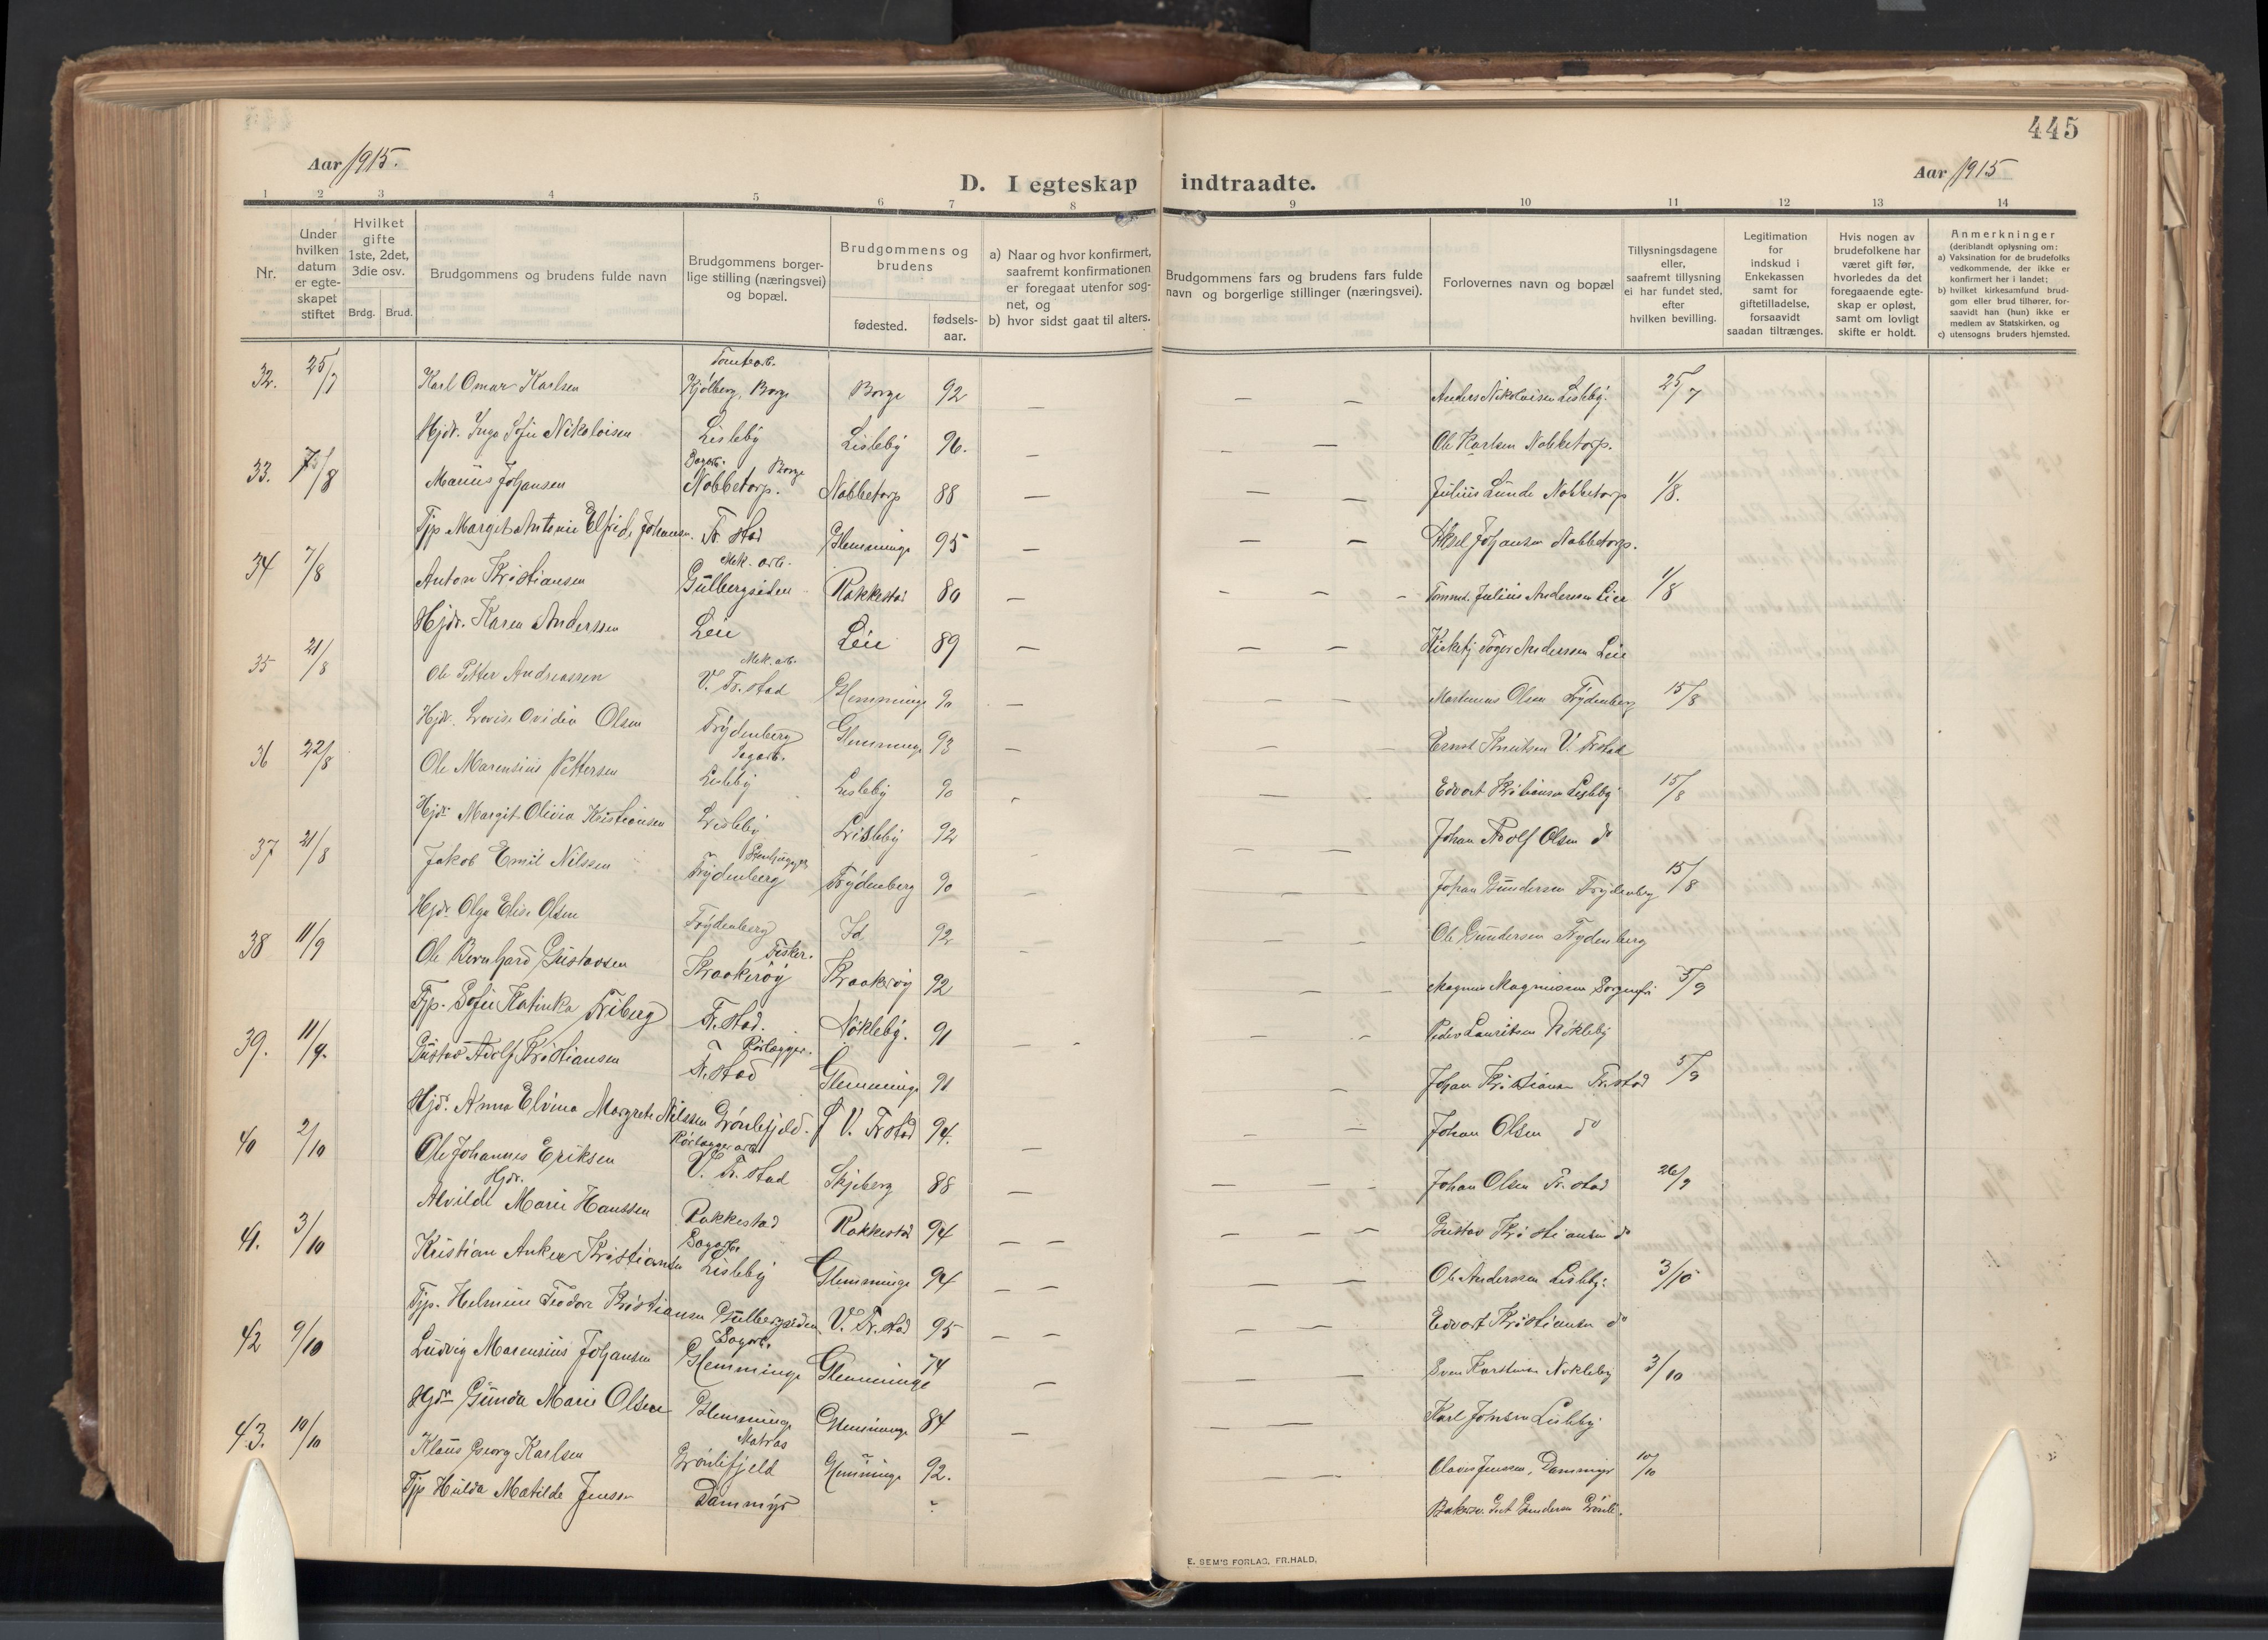 445
Aar 1915.
D. I egteskap indtraadte.
Aar 1915
1 2 3 4 5 6 7 8 9 10 11 12 13 14
Nr.
Under hvilken datum er egte-skapet stiftet
Hvilket gifte 1ste, 2det, 3die osv.
Brdg. Brud.
Brudgommens og brudens fulde navn
Brudgommens borger-lige stilling (næringsvei) og bopæl.
Brudgommens og brudens
fødested.
fødsels-aar.
a) Naar og hvor konfirmert, saafremt konfirmationen er foregaat utenfor sog-net, og
b) hvor sidst gaat til alters.
Brudgommens fars og brudens fars fulde navn og borgerlige stillinger (næringsvei).
Forlovernes navn og bopæl
Tillysningsdagene eller, saafremt tillysning ei har fundet sted, efter hvilken bevilling.
Legitimation for indskud i Enkekassen samt for giftetilladelse, forsaavidt saadan tiltrænges.
Hvis nogen av brudefolkene har været gift før, hvorledes da det foregaaende egte-skap er opløst, samt om lovligt skifte er holdt.
Anmerkninger
(deriblandt oplysning om:
a) Vaksination for de brudefolks vedkommende, der ikke er konfirmert her i landet;
b) hvilket kirkesamfund brud-gom eller brud tilhører, for-saavidt han (hun) ikke er medlem av Statskirken, og
c) utensogns bruders hjemsted.
Tomtearb.
32. 25/7 Karl Omar Karlsen Kjölberg, Borge Borge 92 — — — Anders Nikolaisen Lisleby. 25/7
Hjdr. Inga Sofie Nikolaisen Lisleby Lisleby 96. — — — Ole Karlsen Nabbetorp.
Sagarb. Borge
33. 7/8 Marius Johansen Nabbetorp. Nabbetorp 88 — — — Julius Lunde Nabbetorp 1/8.
Tjp Margit Antonie Elfrid. Johansen. Fr. stad Glemminge 95 — — — Aksel Johansen Nabbetorp.
Mek. arb.
34 7/8 Anton Kristiansen Gulbergsiden Rakkestad 80 — - — — Tømmd. Julius Anderssen Leie 1/8
Hjdr. Karen Anderssen Leie Leie 89 — — — Toger Anderssen Leie
Mek. arb.
35 21/8 Ole Petter Andreassen V. Fr. stad Glemminge 90 — — — Martinius Olsen Frydenberg 15/8
Hjdr. Lovise Ovidia Olsen Frydenberg Glemminge 93 — — - Ernst Knutsen V. Frstad
Sagarb.
36 22/8 Ole Marensius Pettersen Lisleby Lisleby 90 - — - Edvart Kristiansen Lisleby 15/8
Hjdr. Margit Olivia Kristiansen Lisleby Lisleby 92 — — Johan Adolf Olsen do
Stenhugger
37 21/8 Jakob Emil Nilssen Frydenberg Frydenberg 90 — — — Johan Gundersen Frydenberg 15/8
Hjdr. Olga Elise Olsen Frydenberg Id 92 — — — Ole Gundersen Frydenberg
Fisker.
38 11/9 Ole Bernhard Gustavsen Kraakeröy Kraakeröy 92 — — Magnus Magnussen Sorgenfri 5/9
Tjp. Sofie Katinka Friberg Fr. stad. Nökleby. 91 — - — - Peder Lauritsen Nökleby
Rörlægger.
39. 11/9. Gustav Adolf Kristiansen Fr. stad Glemminge 91 — Johan Kristiansen Fr.stad 5/9
Hjdr. Anna Elvina Margrete Nilssen Grönlifjeld. V. Frstad 94. — — — Johan Olsen do
Rörlægger arb.
40 2/10 Ole Johannes Eriksen V. Fr. stad Skjeberg 88 — — — — Johan Olsen Fr. stad 26/9
Hjdr.
Alvilde Marie Hanssen Rakkestad Rakkestad 94 — — — — — Gustav Kristiansen do
Sagarb.
41. 3/10 Kristian Anker Kristiansen Lisleby Glemminge 94 — — — — Ole Anderssen Lisleby. 3/10
Tjp. Helmine Teodora Kristiansen Gulbergsiden V. Fr. stad 95 — — — — Edvart Kristiansen do
Sagarb.
42 9/10 Ludvig Marensius Johansen Glemminge Glemminge 74 — — — Sven Karstinsen Nökleby 3/10
Hjdr Gunda Marie Olsen Glemminge Glemminge 84 — — — Karl Johnsen Lisleby.
Matros
43. 10/10 Klaus Georg Karlsen Grönlifjeld Glemminge 92. — — Olaves Jenssen, Dammyr 10/10
Tjp Hulda Matilde Jensen Dammyr Gundersen
E. SEM'S FORLAG, FR.HALD.